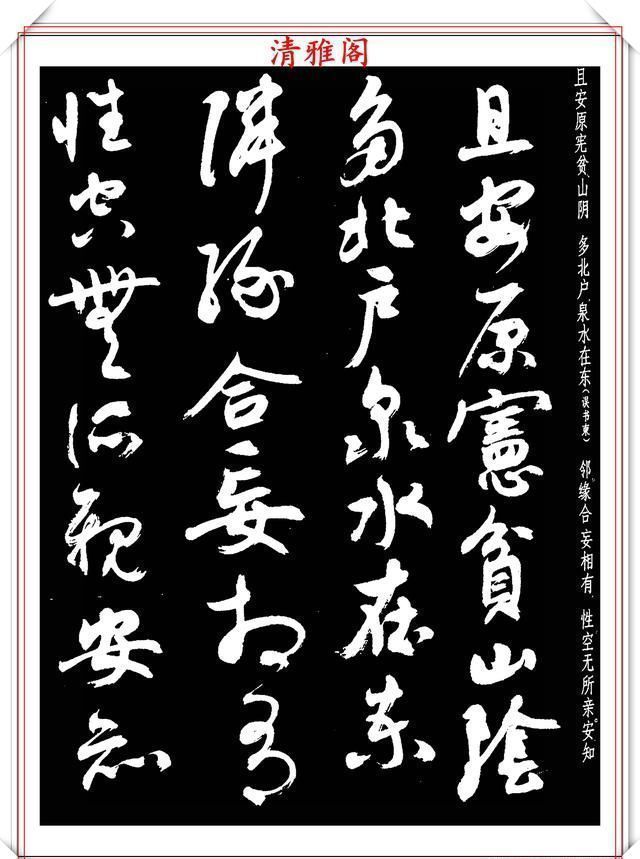 清雅阁
且安原憲貧山陰
多北戶泉水在東
隣緣合妄相有
性空無所親安知
且安原宪贫、山阴 多北户,泉水在东(误书束) 邻,缘合妄相有,性空无所亲。安知